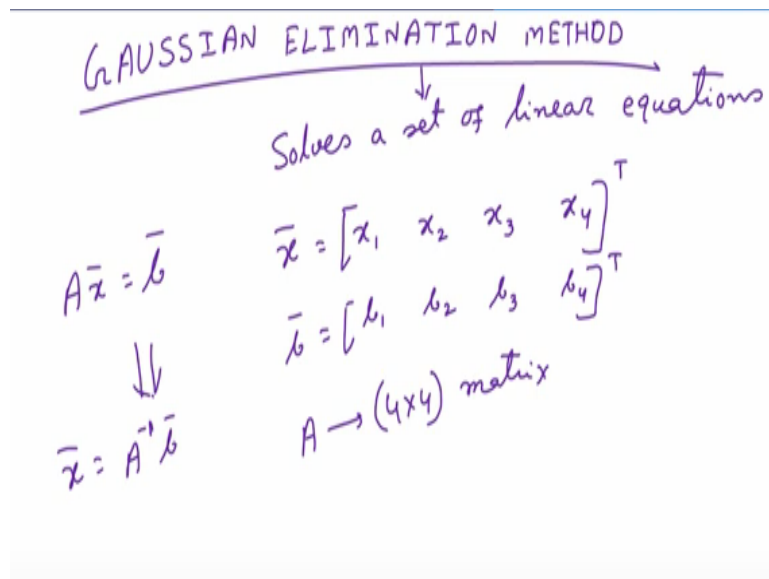 GAUSSIAN ELIMINATION METHOD
Solves a set of linear equations
A x̄ = b̄
x̄ = [x₁ x₂ x₃ x₄]ᵀ
b̄ = [b₁ b₂ b₃ b₄]ᵀ
x̄ = A⁻¹ b̄
A → (4×4) matrix